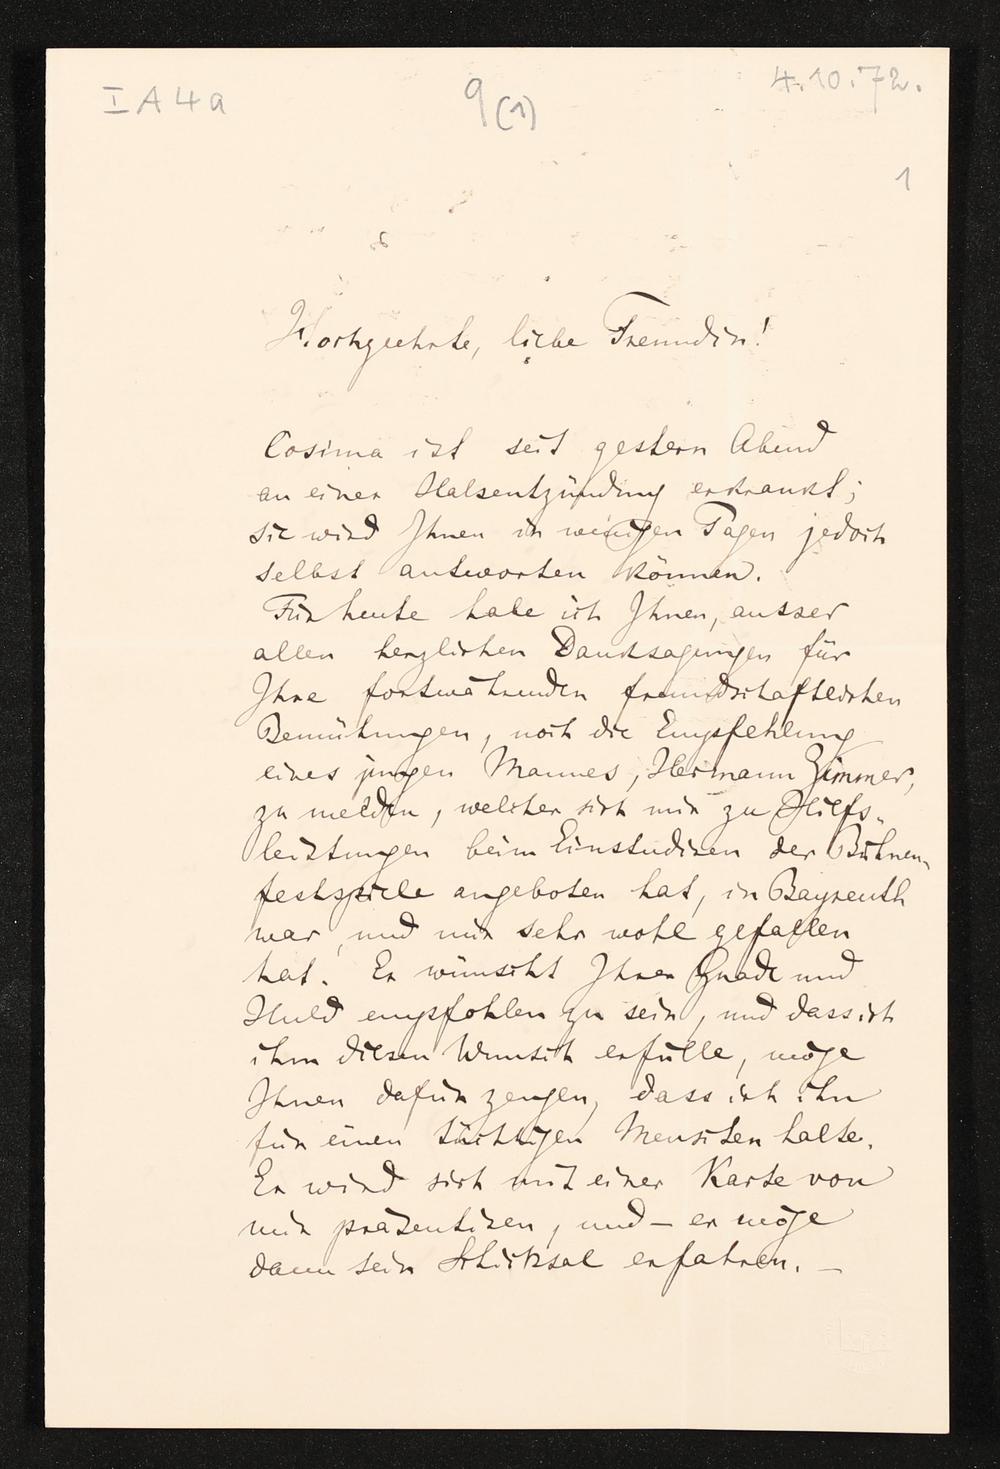 I A 4 a
9(1)
4.10.72.
1
Hochgeehrte, liebe Freundin!
Cosima ist seit gestern Abend
an einer Halsentzündung erkrankt;
sie wird Ihnen in wenigen Tagen jedoch
selbst antworten können.
Für heute habe ich Ihnen, ausser
allen herzlichen Danksagungen für
Ihre fortwährenden freundschaftlichen
Bemühungen, noch die Empfehlung
eines jungen Mannes, Hermann Zimmer,
zu melden, welcher sich mir zu Hilfs-
leistungen beim Einstudiren der Bühnen-
festspiele angeboten hat, in Bayreuth
war, und mir sehr wohl gefallen
hat. Er wünscht Ihrer Gnade und
Huld empfohlen zu sein, und dass ich
ihm diesen Wunsch erfülle, möge
Ihnen dafür zeugen, dass ich ihn
für einen tüchtigen Menschen halte.
Er wird sich mit einer Karte von
mir präsentiren, und – er möge
dann sein Schicksal erfahren. –